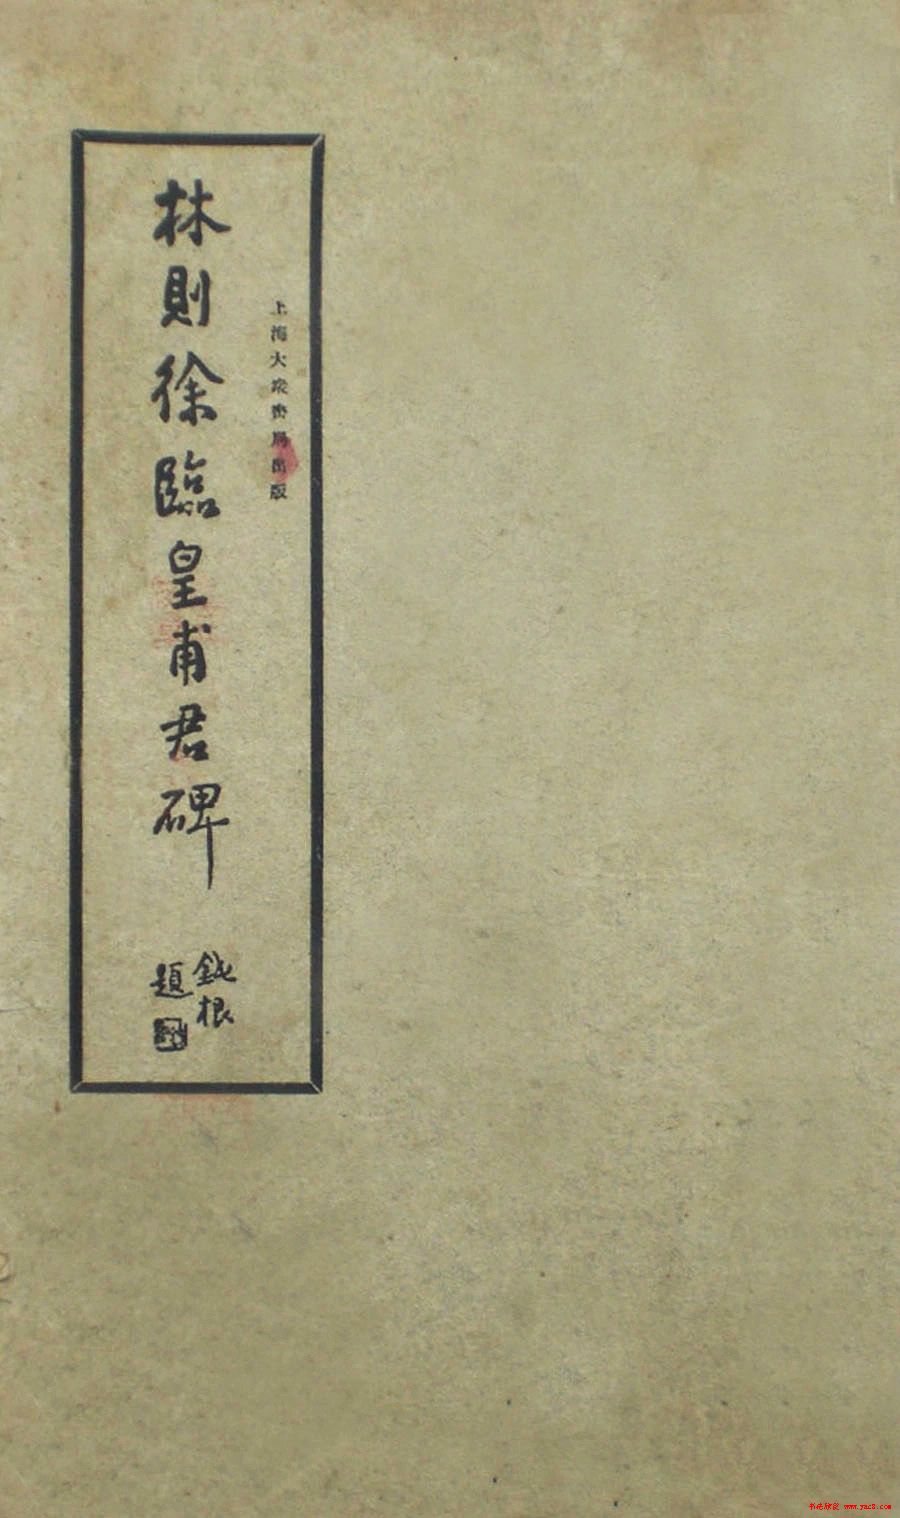 上海大眾書局出版
林則徐臨皇甫君碑
鈍根
題
书法欣赏 www.yac8.com